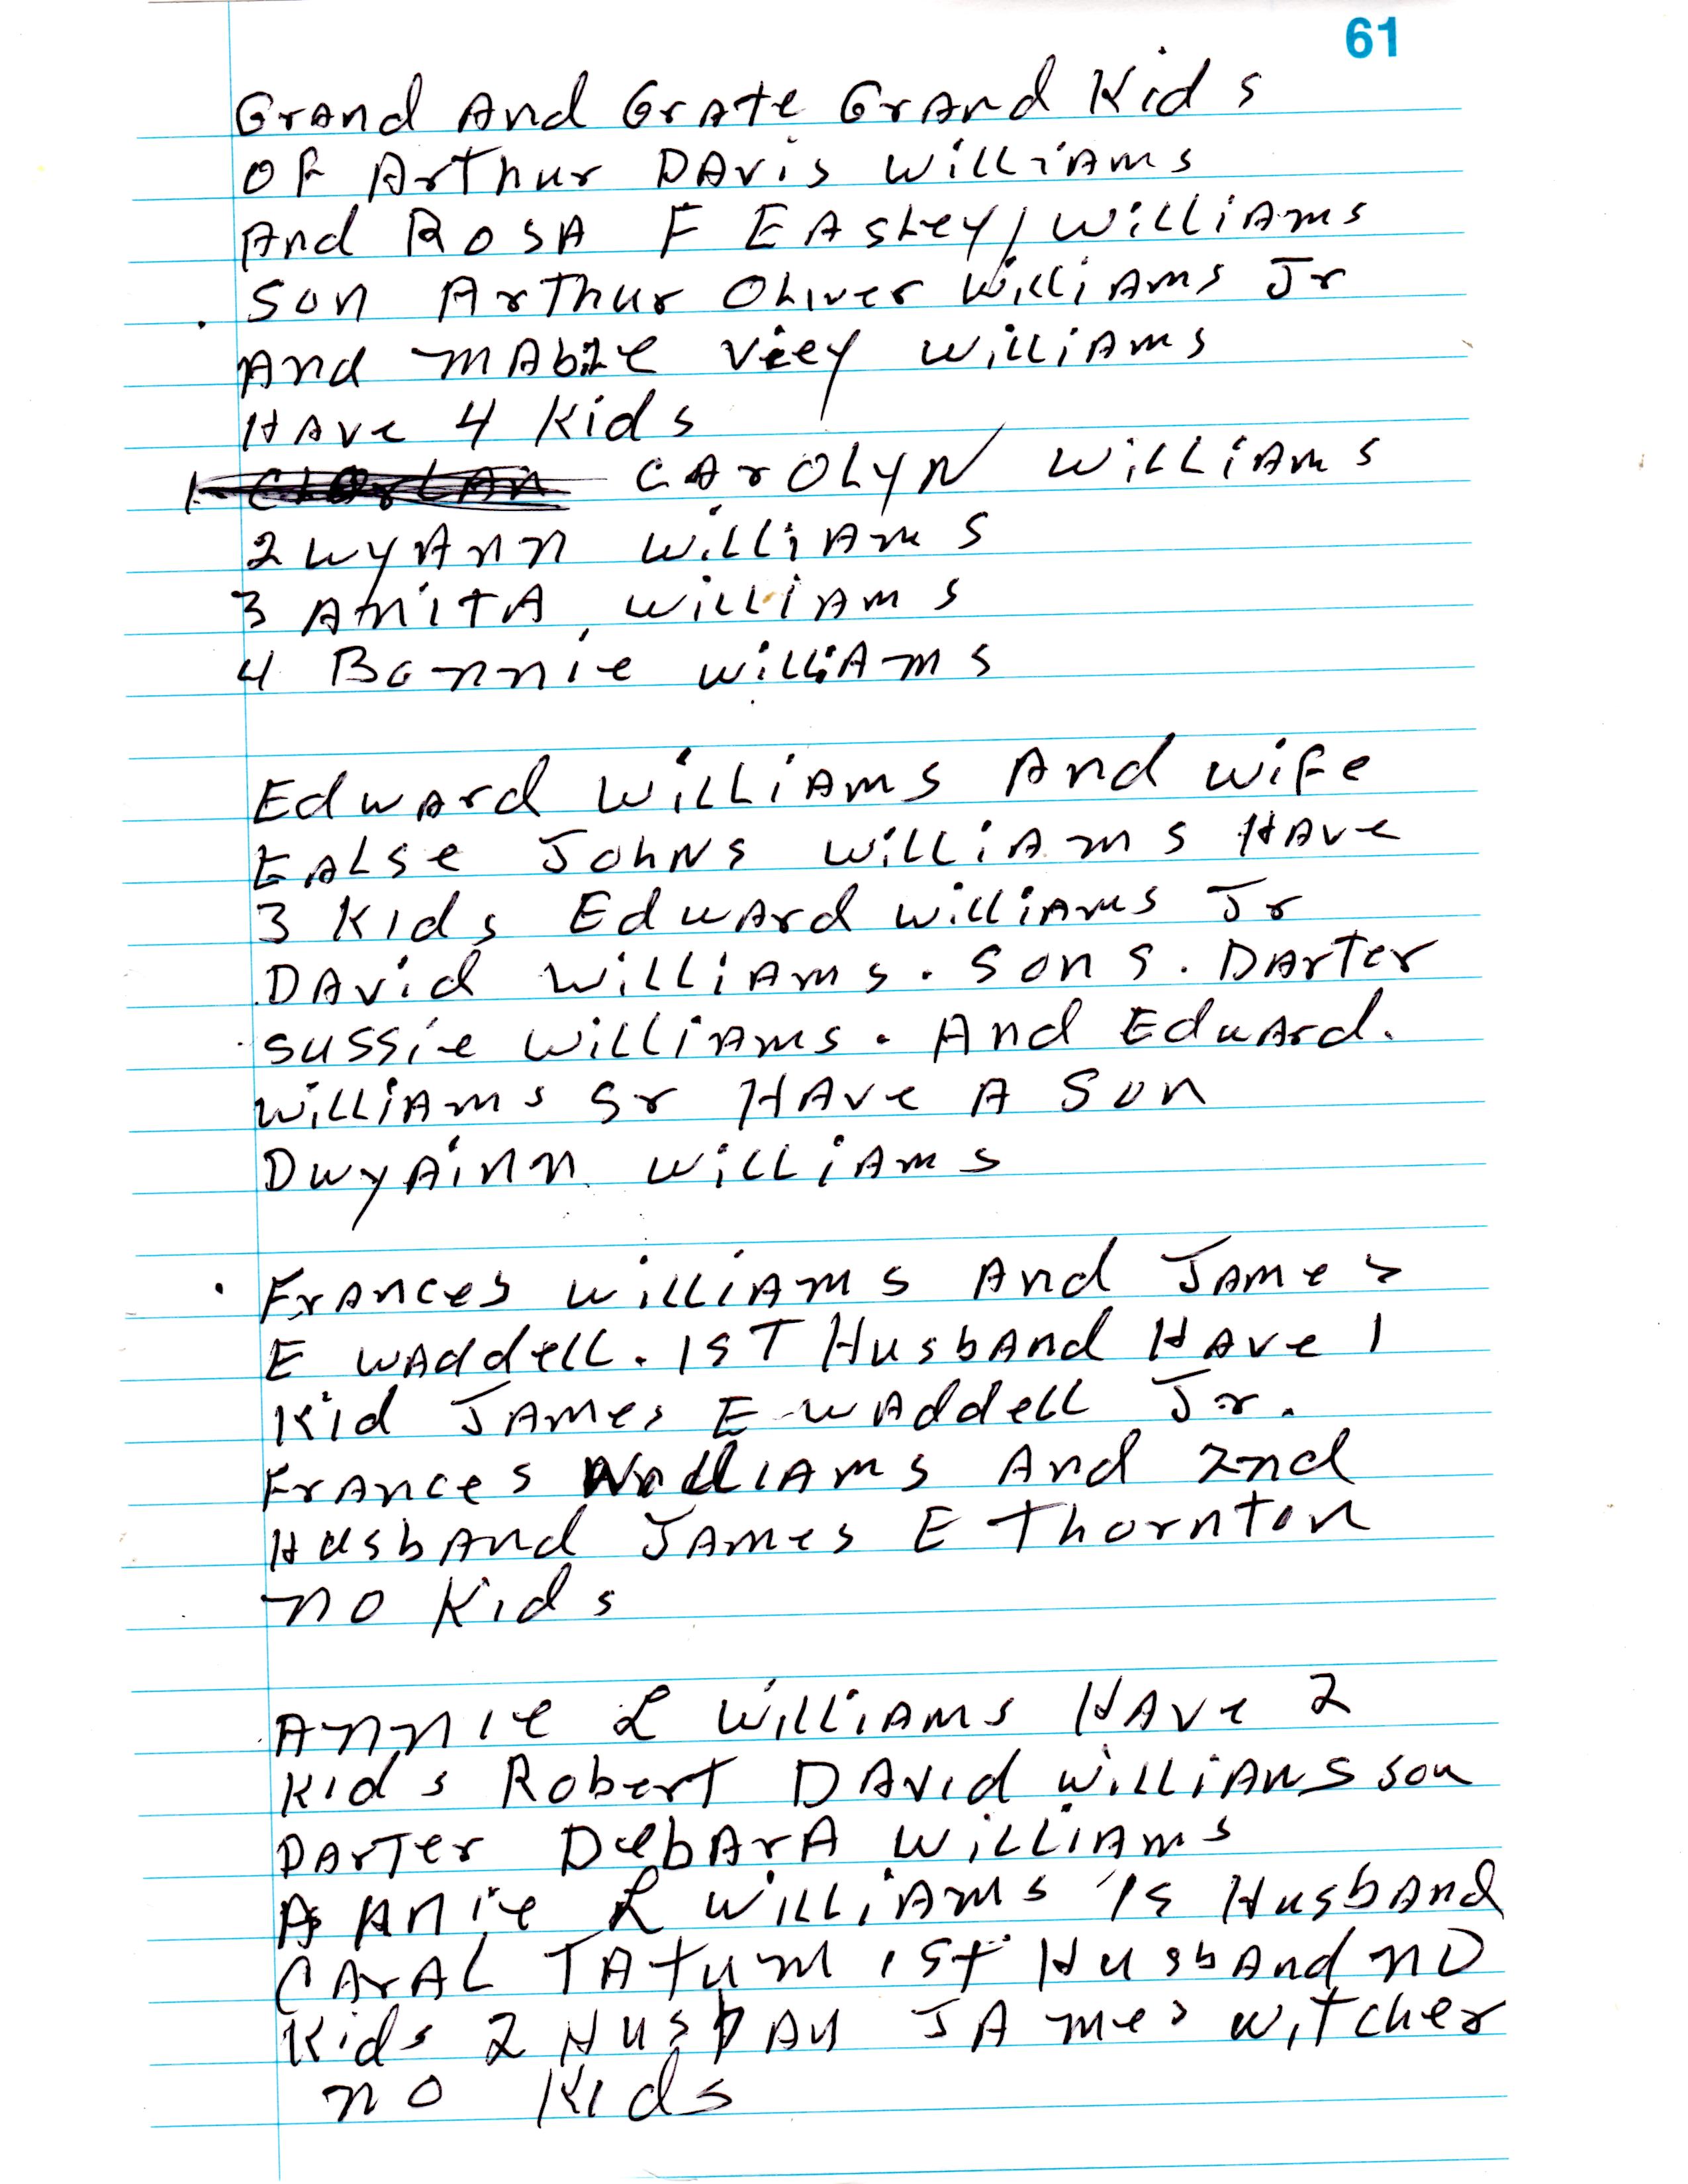 61
Grand And Grate Grand Kids
OF Arthur DAvis williams
And ROSA F EASLey/williams
Son Arthur Oliver Williams Jr
And MAble Viey Williams
HAve 4 Kids
1. CAROLYN WilliAms
2 wyAnn Williams
3 AnitA Williams
4 Bonnie williAms
Edward WilliAms And wife
EALse JohNs WilliAms HAve
3 Kids Edward williAms Jr
DAvid WilliAms. Sons. DArter
Sussie WilliAms. And Edward.
WilliAms Sr HAve A Son
DwyAinn WilliAms
FrAnces WilliAms And JAmes
E WAddell. 1ST HusbAnd HAve 1
Kid JAmes E WAddell Jr.
FrAnces WilliAms And 2nd
HusbAnd JAmes E Thornton
no Kids
Annie L WilliAms HAve 2
Kids Robert DAvid WilliAms son
DArTer DebArA WilliAms
Annie L WilliAms 1s HusbAnd
CArAL TATum 1st HusbAnd no
Kids 2 HusbAn JAmes Witcher
no Kids